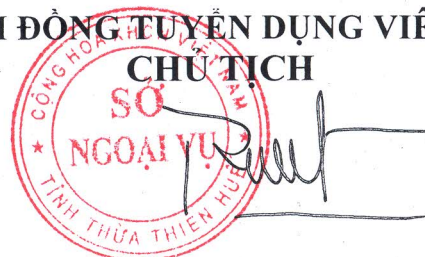 ĐỒNG TUYỂN DỤNG
CHỦ TỊCH
CỘNG HOÀ XHCN VIỆT NAM
SỞ
NGOẠI VỤ
TỈNH THỪA THIÊN HUẾ